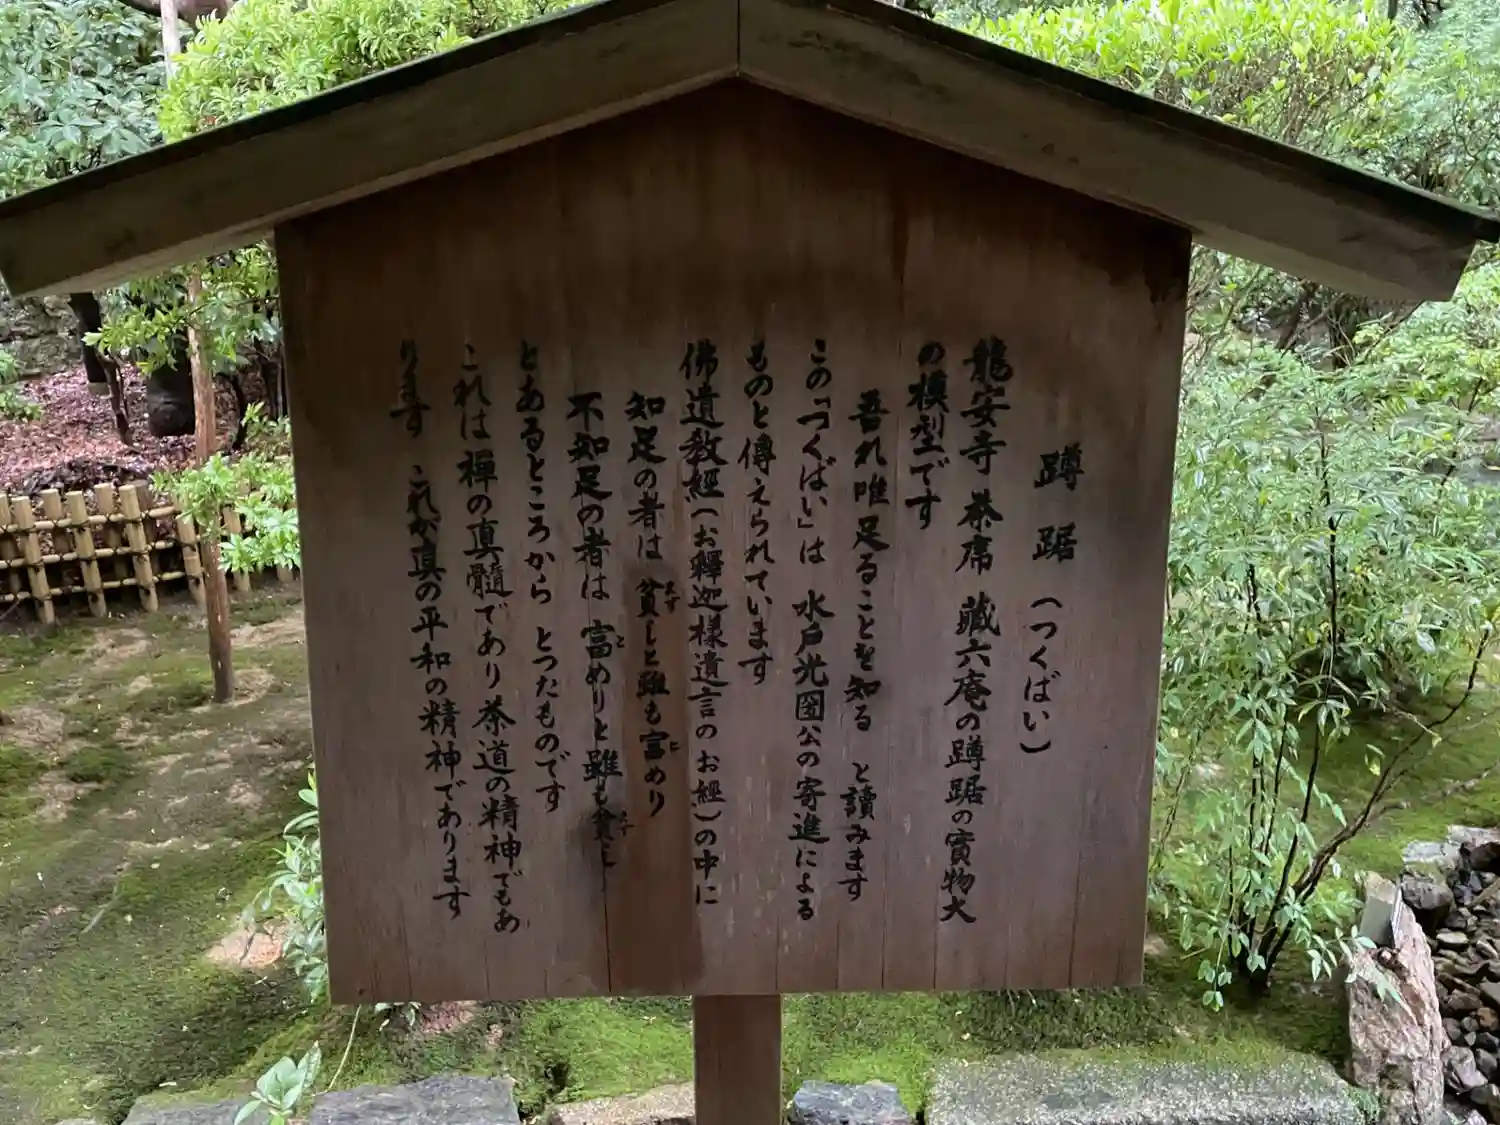 蹲踞（つくばい）
龍安寺 茶席 蔵六庵の蹲踞の實物大
の模型です
吾れ唯足ることを知る と讀みます
この「つくばい」は 水戸光圀公の寄進による
ものと傳えられています
佛遺敎經（お釋迦様遺言のお經）の中に
知足の者は 貧しと雖も富めり
まず
と
不知足の者は 富めりと雖も貧し
と
まず
とあるところから とつたものです
これは禪の真髓であり茶道の精神でもあ
ります これが真の平和の精神であります